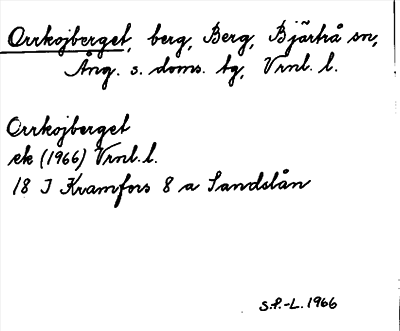 Orrkojberget, berg, Berg, Bjärtrå sn,
Ång. s. doms. tg, Vrnl. l.
Orrkojberget
ek (1966) Vrnl. l.
18 I Kramfors 8 a Sandslån
S.P.-L. 1966